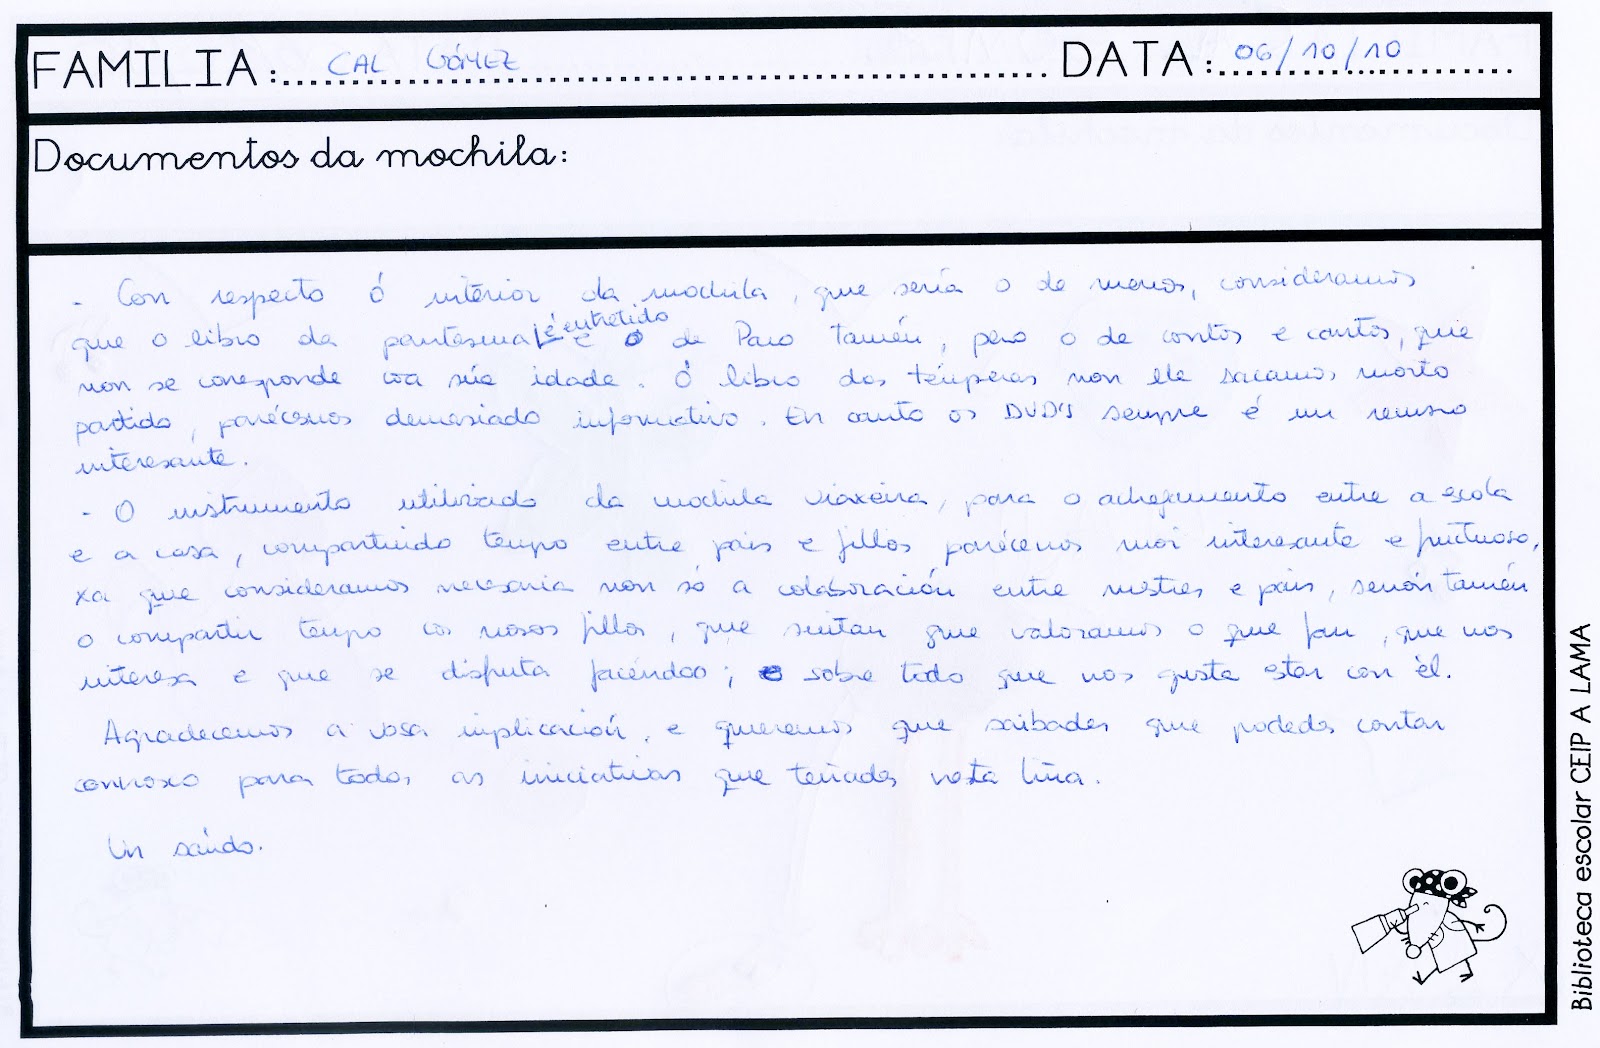 FAMILIA: CAL GÓMEZ DATA: 06/10/10
Documentos da mochila:
- Con respecto ó interior da mochila, que sería o de menos, consideramos
que o libro da pantasma é entretido e o de Paco tamén, pero o de contos e cantos, que
non se corresponde coa súa idade. Ó libro das témperas non lle sacamos moito
partido, parécenos demasiado informativo. En canto os DVD'S sempre é un recurso
interesante.
- O instrumento utilizado da mochila viaxeira, para o achegamento entre a escola
e a casa, compartindo tempo entre pais e fillos parécenos moi interesante e fructuoso,
xa que consideramos necesaria non só a colaboración entre mestres e pais, senón tamén
o compartir tempo cos nosos fillos, que sintan que valoramos o que fan, que nos
interesa e que se disfruta facéndoo; e sobre todo que nos gusta estar con él.
Agradecemos a vosa implicación, e queremos que saibades que podedes contar
connosco para todas as iniciativas que teñades nesta liña.
Un saúdo.
Biblioteca escolar CEIP A LAMA